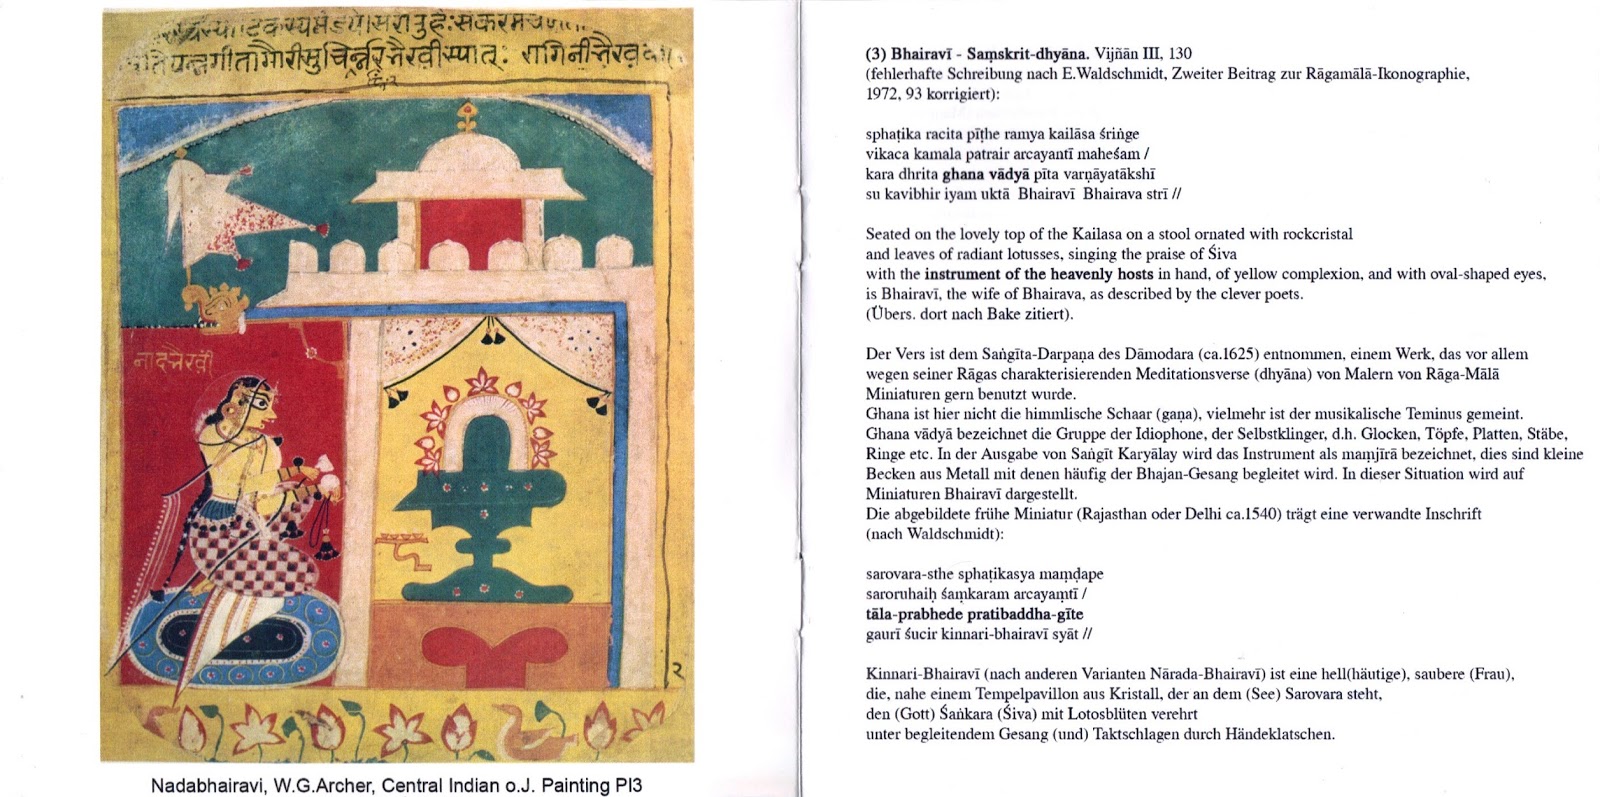 रागिनी
नादभैरवी
२
Nadabhairavi, W.G.Archer, Central Indian o.J. Painting Pl3
(3) Bhairavī - Saṃskrit-dhyāna. Vijñān III, 130
(fehlerhafte Schreibung nach E.Waldschmidt, Zweiter Beitrag zur Rāgamālā-Ikonographie,
1972, 93 korrigiert):
sphaṭika racita pīṭhe ramya kailāsa śriṅge
vikaca kamala patrair arcayantī maheśam /
kara dhrita ghana vādyā pīta varṇāyatākshī
su kavibhir iyam uktā Bhairavī Bhairava strī //
Seated on the lovely top of the Kailasa on a stool ornated with rockcristal
and leaves of radiant lotusses, singing the praise of Śiva
with the instrument of the heavenly hosts in hand, of yellow complexion, and with oval-shaped eyes,
is Bhairavī, the wife of Bhairava, as described by the clever poets.
(Übers. dort nach Bake zitiert).
Der Vers ist dem Saṅgīta-Darpaṇa des Dāmodara (ca.1625) entnommen, einem Werk, das vor allem
wegen seiner Rāgas charakterisierenden Meditationsverse (dhyāna) von Malern von Rāga-Mālā
Miniaturen gern benutzt wurde.
Ghana ist hier nicht die himmlische Schaar (gaṇa), vielmehr ist der musikalische Teminus gemeint.
Ghana vādyā bezeichnet die Gruppe der Idiophone, der Selbstklinger, d.h. Glocken, Töpfe, Platten, Stäbe,
Ringe etc. In der Ausgabe von Saṅgīt Karyālay wird das Instrument als maṃjīrā bezeichnet, dies sind kleine
Becken aus Metall mit denen häufig der Bhajan-Gesang begleitet wird. In dieser Situation wird auf
Miniaturen Bhairavī dargestellt.
Die abgebildete frühe Miniatur (Rajasthan oder Delhi ca.1540) trägt eine verwandte Inschrift
(nach Waldschmidt):
sarovara-sthe sphaṭikasya maṃḍape
saroruhaiḥ śaṃkaram arcayaṃtī /
tāla-prabhede pratibaddha-gīte
gaurī śucir kinnari-bhairavī syāt //
Kinnari-Bhairavī (nach anderen Varianten Nārada-Bhairavī) ist eine hell(häutige), saubere (Frau),
die, nahe einem Tempelpavillon aus Kristall, der an dem (See) Sarovara steht,
den (Gott) Śaṅkara (Śiva) mit Lotosblüten verehrt
unter begleitendem Gesang (und) Taktschlagen durch Händeklatschen.